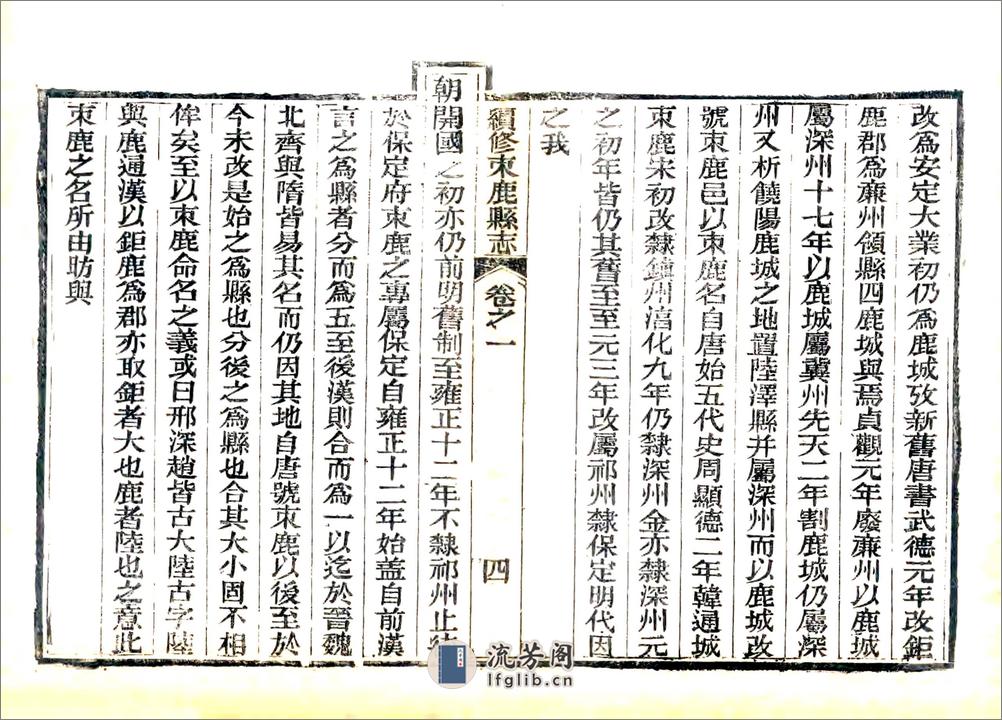 改爲安定大業初仍爲鹿城攷新舊唐書武德元年改鉅
鹿郡爲亷州領縣四鹿城與焉貞觀元年廢亷州以鹿城
屬深州十七年以鹿城屬冀州先天二年割鹿城仍屬深
州又析饒陽鹿城之地置陸澤縣并屬深州而以鹿城改
號束鹿邑以束鹿名自唐始五代史周顯德二年韓通城
束鹿宋初改隸鎮州淳化九年仍隸深州金亦隸深州元
之初年皆仍其舊至至元三年改屬祁州隸保定明代因
之我
續修束鹿縣志 卷之一 四
朝開國之初亦仍前明舊制至雍正十二年不隸祁州止
於保定府束鹿之專屬保定自雍正十二年始蓋自前漢
言之爲縣者分而爲五至後漢則合而爲一以迄於晉魏
北齊與隋皆易其名而仍因其地自唐號束鹿以後至於
今未改是始之爲縣也分後之爲縣也合其大小固不相
侔矣至以束鹿命名之義或曰邢深趙皆古大陸古字陸
與鹿通漢以鉅鹿爲郡亦取鉅者大也鹿者陸也之意此
束鹿之名所由昉與
流芳阁
lfglib.cn